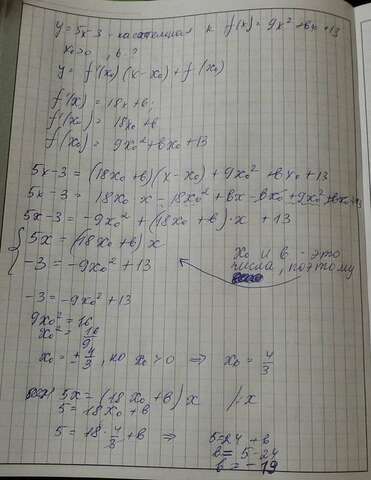 y = 5x-3 - касательная к f(x) = 9x² + вx + 13
x₀>0, в-?
y = f'(x₀)(x-x₀) + f(x₀)
f'(x) = 18x + в
f'(x₀) = 18x₀ + в
f(x₀) = 9x₀² + вx₀ + 13
5x-3 = (18x₀ + в)(x-x₀) + 9x₀² + вx₀ + 13
5x-3 = 18x₀x - 18x₀² + вx - вx₀ + 9x₀² + вx₀ + 13
5x-3 = -9x₀² + (18x₀ + в)·x + 13
{ 5x = (18x₀ + в)x
-3 = -9x₀² + 13
x₀ и в - это
числа, поэтому
-3 = -9x₀² + 13
9x₀² = 16
x₀² = 16/9
x₀ = ± 4/3, но x₀ > 0 ⇒ x₀ = 4/3
5x = (18x₀ + в)x /:x
5 = 18x₀ + в
5 = 18·4/3 + в ⇒
5 = 24 + в
в = 5-24
в = -19